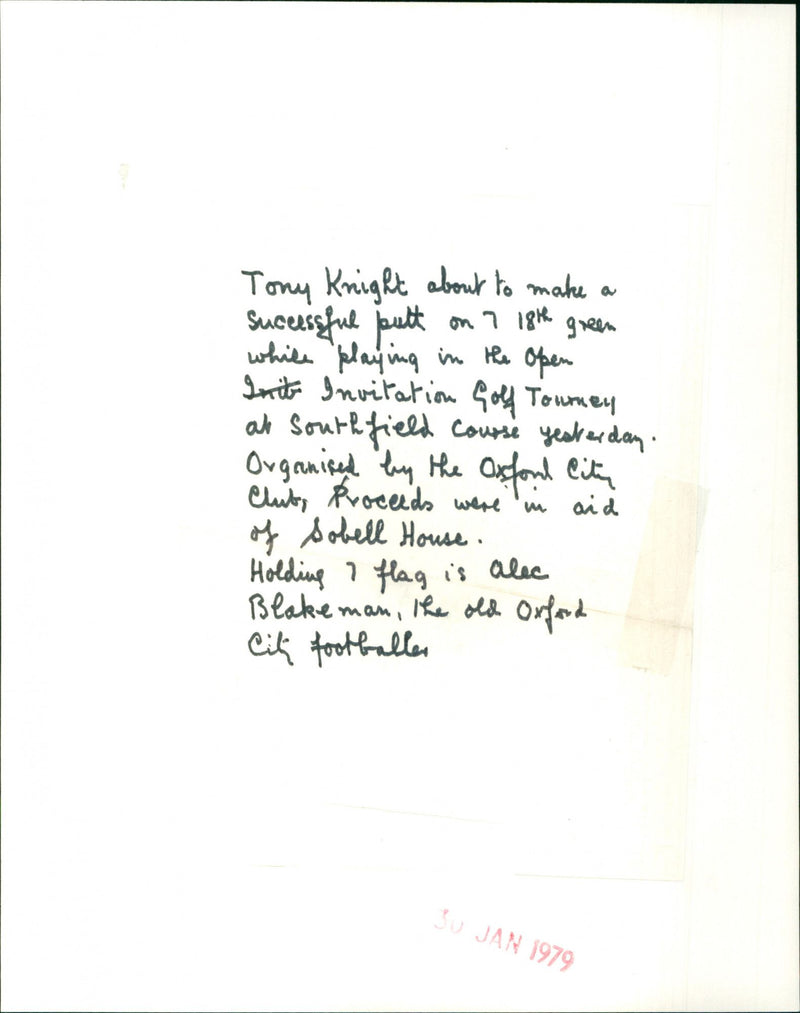 Tony Knight about to make a
successful putt on 7 18th green
while playing in the Open
Init Invitation Golf Tourney
at Southfield Course yesterday.
Organised by the Oxford City
Club, Proceeds were in aid
of Sobell House.
Holding 7 flag is Alec
Blakeman, the old Oxford
City footballer
30 JAN 1979